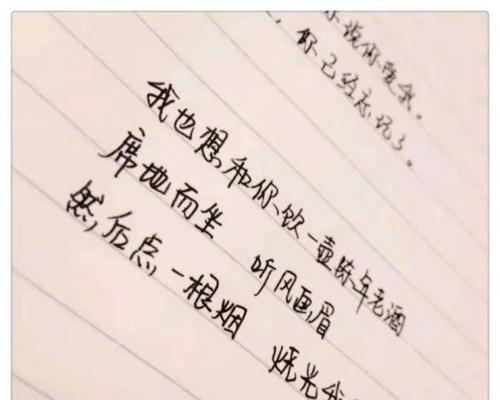 你说你爱我。
你已经忘记了。
我也想和你、饮一壶陈年老酒
席地而坐 听风画眉
然后点一根烟 烧光我